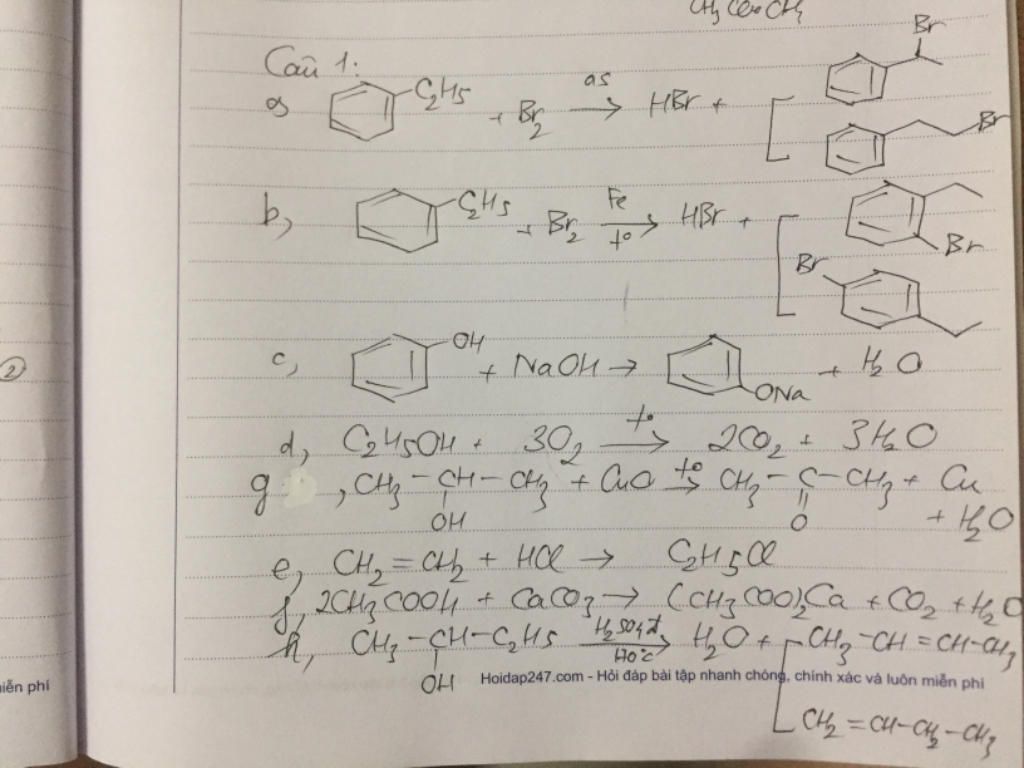 CH3COOCH3
Câu 1:
a, C2H5 + Br2 as → HBr + Br
Br
b, C2H5 + Br2 Fe t° → HBr + Br
Br
c, OH + NaOH → ONa + H2O
d, C2H5OH + 3O2 t° → 2CO2 + 3H2O
g, CH3-CH-CH3 + CuO t° → CH3-C-CH3 + Cu
OH O + H2O
e, CH2=CH2 + HCl → C2H5Cl
f, 2CH3COOH + CaCO3 → (CH3COO)2Ca + CO2 + H2O
h, CH3-CH-C2H5 H2SO4đ 170°C → H2O + CH3-CH=CH-CH3
OH
CH2=CH-CH2-CH3
Hoidap247.com - Hỏi đáp bài tập nhanh chóng, chính xác và luôn miễn phí
iễn phí
2